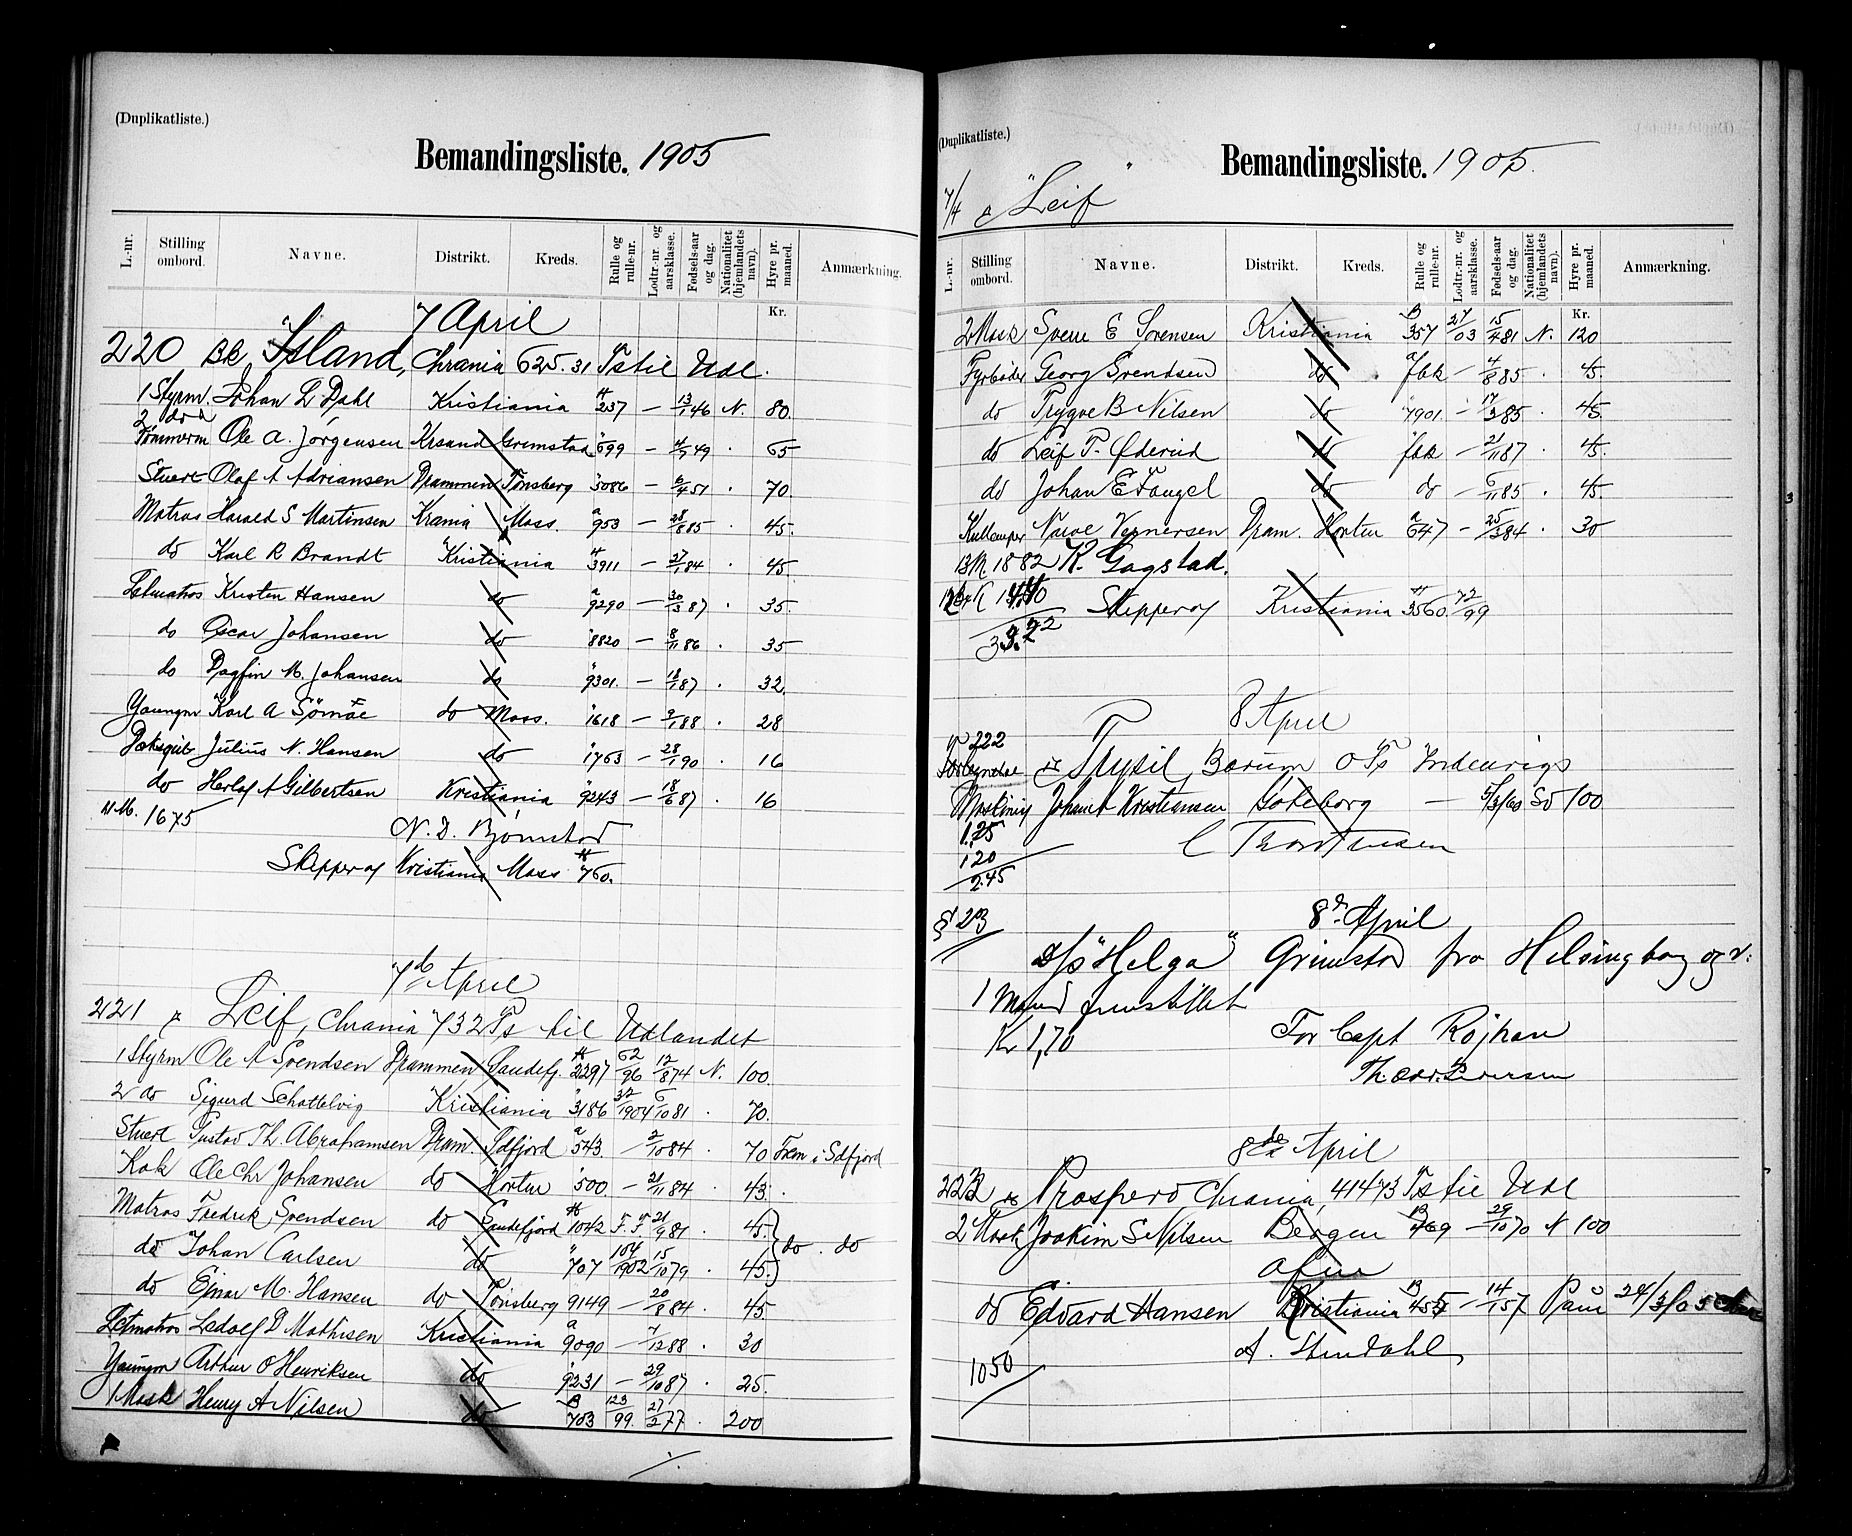 (Duplikatliste.)
Bemandingsliste. 1905
L.-nr. Stilling ombord. Navne. Distrikt. Kreds. Rulle og rulle-nr. Lodtr.-nr. og aarsklasse. Fødsels-aar og dag. Nationalitet (hjemlandets navn). Hyre pr. maaned. Anmærkning.
Kr.
7 April
220 Bk Island, Chrania 625.31 Ts til Udl.
1 Styrm. Johan L Dahl Kristiania 237 — 13/1 46 N. 80
2 do
Tømmerm Ole A. Jørgensen Krsand Grimstad 699 — 49 65
Stuert Olaf A Adriansen Drammen Tønsberg 3086 — 6/4 51 70
Matros Harald S Martinsen Krania Moss. a 953 — 28/8 85 45.
do Karl R Brandt Kristiania 3911 — 27/1 84 45
Letmatros Kristen Hansen do a 9290 — 30/3 87 35.
do Oscar Johansen do 8820 — 8/11 86 35
do Dagfin M. Johansen do 9301. — 87 32.
Youngm Karl A do Moss. 1618 — 9/1 88 28
Dæksgut Julius N. Hansen do 1763 — 28/1 90 16
do Herlof A Gilbertsen Kristiania 9243 — 18/6 87 16
M. 1675
N. D. Bjørnstad
Skipper af Kristiania Moss 760.
7de April
221 Leif, Chrania 732 Ts til Udlandet
1 Styrm Ole A Svendsen Drammen Sandefj. 2297 62/96 12/8 74 N. 100
2 do Sigurd Schottelvig Kristiania 3186 32/1904 6/10 81 70.
Stuert Gustav Th. Abrahamsen Dram. Sdfjord a 543. — 2/10 84 70 Frem i Sdfjord
Kok Ole Chr Johansen do Horten 500. — 21/11 84 43.
Matros Fredrik Svendsen do Sandefjord 1042 F. F 21/9 81 45.
do Johan Carlsen do 707 104/1902 15/10 79 45. do. do
do Ejnar M. Hansen do Tønsberg 9149 — 20/8 84 45
Letmatros Ledolf D Mathisen Kristiania a 9090 — 7/12 88 30
Youngm Arthur O Henriksen do 9231 — 29/10 87 25.
1 Mask Henry A Nilsen do B 703 123/99. 27/2 77 200
(Duplikatliste.)
Bemandingsliste. 1905.
7/4 "Leif"
L.-nr. Stilling ombord. Navne. Distrikt. Kreds. Rulle og rulle-nr. Lodtr.-nr. og aarsklasse. Fødsels-aar og dag. Nationalitet (hjemlandets navn). Hyre pr. maaned. Anmærkning.
Kr.
2 Mask Sverre E Sørensen Kristiania B 357 27/03 15/4 81 N. 120
Fyrbøder Georg Svendsen do fbk — 4/8 85 45.
do Trygve B Nilsen do 7901. — 17/3 85 45.
do Leif T. Øderud do fbk — 21/11 87 45.
do Johan E Fangel do do — 6/11 85 45.
Kullemper Narve Vernersen Dram. Horten a 647 — 25/3 84 30
1882 K. Gagstad.
Skipper af Kristiania 3560. 72/99
3.22
8 April
222
Trysil, Bærum 0 Ts Indenrigs
Maskinist Johan A Kristiansen Gøteborg — 5/3/60 Sv 100
1.25
120
2.45
C Thorstensen
§ 23
8de April
D/s "Helga" Grimstad fra Helsingborg og v:
1 Mand fremstillet
Kr 1,70
For Capt Rojhan
8de April
223 Prospero Chrania, 414 73 Ts til Udl
2 Mask Joakim S Nilsen Bergen B 469 — 29/10 70 N 100
do Edvard Hansen Kristiania B 457 — 14/1 57 24/3/05
A. Stendahl
1050